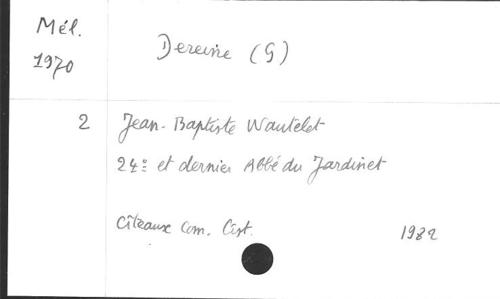 Mél.
1970
Dereine (G)
2
Jean-Baptiste Wautelet
24e et dernier Abbé du Jardinet
Cîteaux Com. Cist.
1982